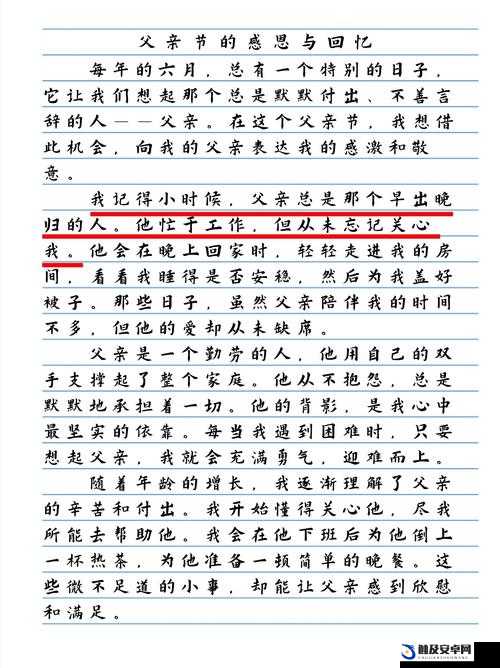 父亲节的感恩与回忆
每年的六月，总有一个特别的日子，
它让我们想起那个总是默默付出、不善言
辞的人——父亲。在这个父亲节，我想借
此机会，向我的父亲表达我的感激和敬
意。
我记得小时候，父亲总是那个早出晚
归的人。他忙于工作，但从未忘记关心
我。他会在晚上回家时，轻轻走进我的房
间，看看我睡得是否安稳，然后为我盖好
被子。那些日子，虽然父亲陪伴我的时间
不多，但他的爱却从未缺席。
父亲是一个勤劳的人，他用自己的双
手支撑起了整个家庭。他从不抱怨，总是
默默地承担着一切。他的背影，是我心中
最坚实的依靠。每当我遇到困难时，只要
想起父亲，我就会充满勇气，迎难而上。
随着年龄的增长，我逐渐理解了父亲
的辛苦和付出。我开始懂得关心他，尽我
所能去帮助他。我会在他下班后为他倒上
一杯热茶，为他准备一顿简单的晚餐。这
些微不足道的小事，却能让父亲感到欣慰
和满足。
触及安卓网